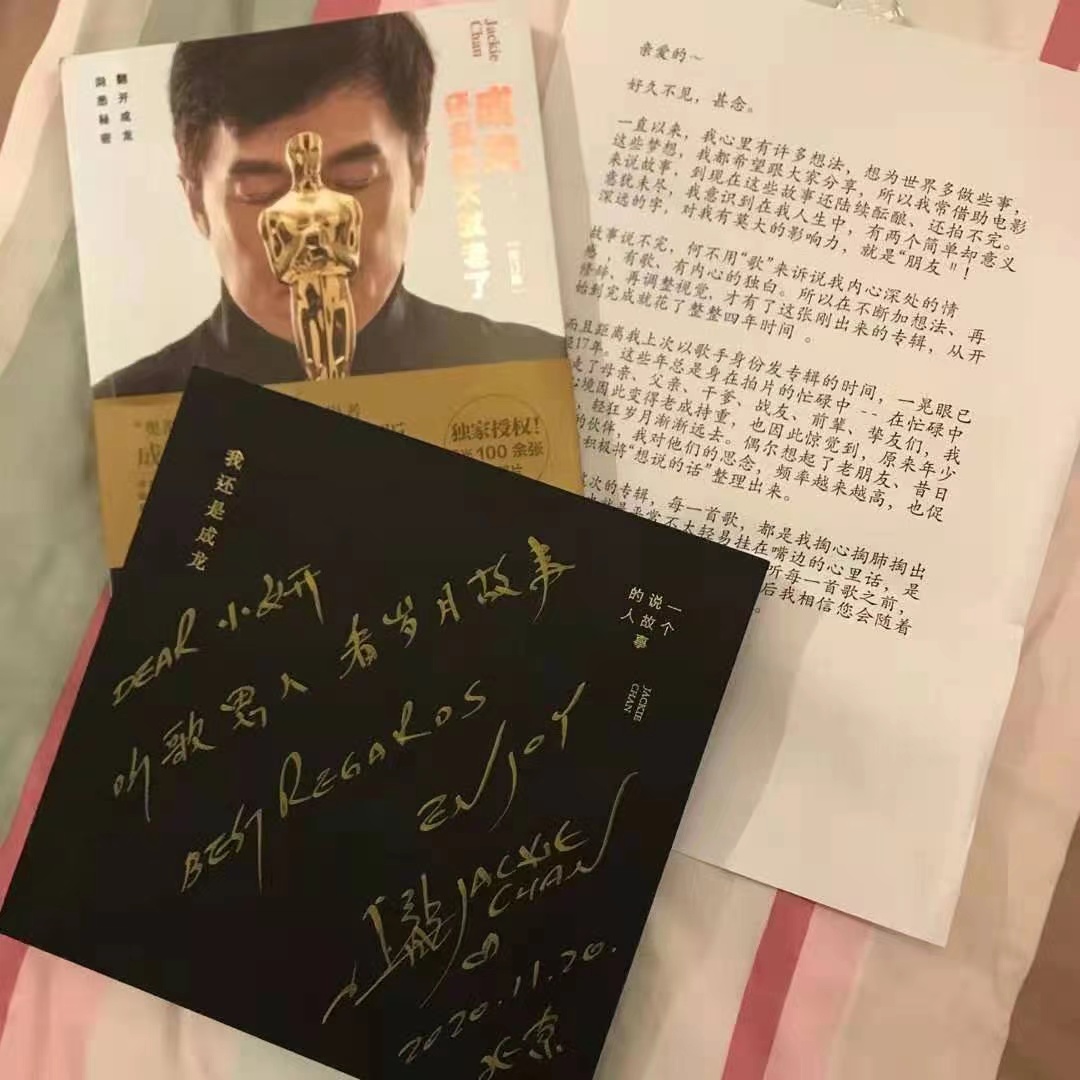 Jackie
Chan
翻开成龙
洞悉秘密
成龙:
还没长大就老了
独家授权!
100余张
亲爱的~
好久不见,甚念。
一直以来,我心里有许多想法,想为世界多做些事,
这些梦想,我都希望跟大家分享,所以我常借助电影
来说故事,到现在这些故事还陆续酝酿、还拍不完。
意犹未尽,我意识到在我人生中,有两个简单却意义
深远的字,对我有莫大的影响力,就是“朋友"!
故事说不完,何不用“歌”来诉说我内心深处的情
感,有歌,有内心的独白。所以在不断加想法、再
修辞、再调整视觉,才有了这张刚出来的专辑,从开
始到完成就花了整整四年时间。
而且距离我上次以歌手身份发专辑的时间,一晃眼已
17年。这些年总是身在拍片的忙碌中--在忙碌中
走了母亲、父亲、干爹、战友、前辈、挚友们,我
心境因此变得老成持重,也因此惊觉到,原来年少
轻狂岁月渐渐远去。偶尔想起了老朋友、昔日
的伙伴,我对他们的思念,频率越来越高,也促
积极将“想说的话”整理出来。
次的专辑,每一首歌,都是我掏心掏肺掏出
平常不太轻易挂在嘴边的心里话,是
听每一首歌之前,
后我相信您会随着
我还是成龙
一个
说故事
的人
JACKIE
CHAN
DEAR 小妍
听歌男人看岁月故事
BEST REGARDS
ENJOY
JACKIE
CHAN
2020.11.20.
北京